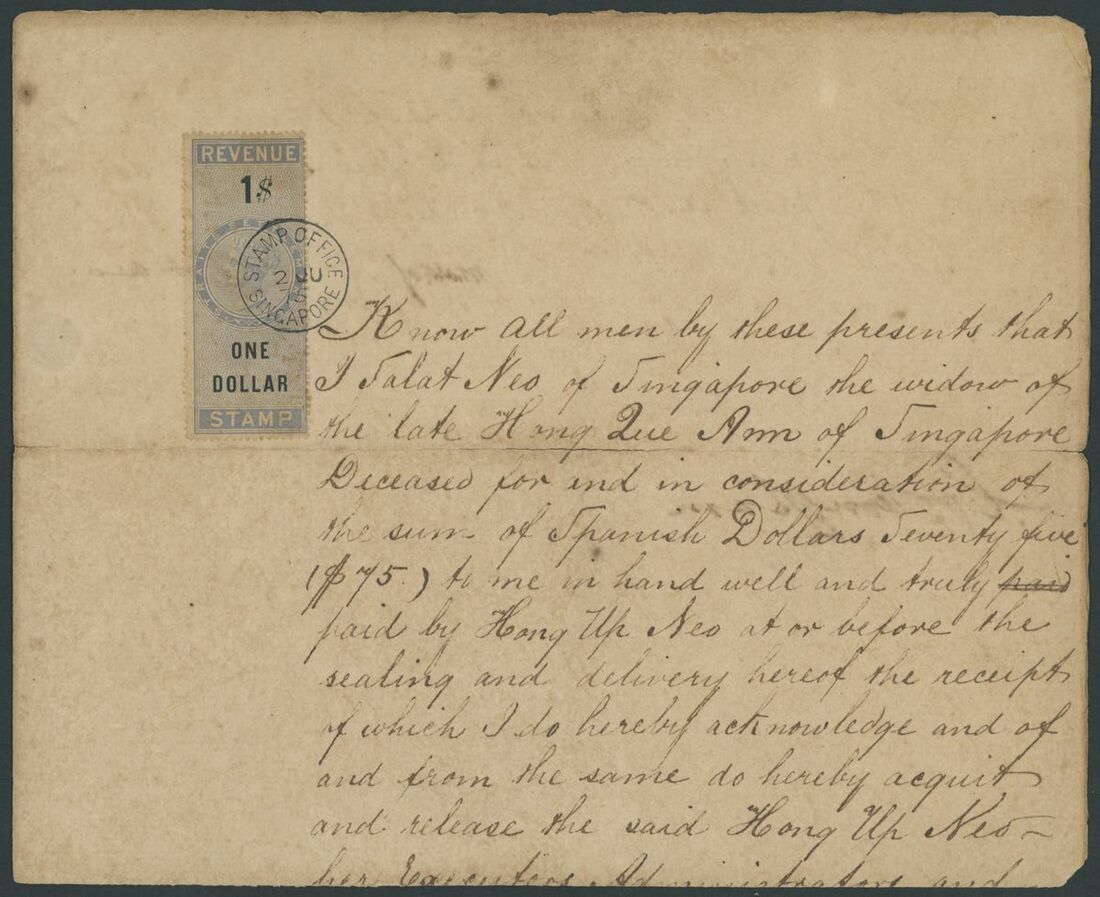 REVENUE
1$
STRAITS SETTLEMENTS
ONE
DOLLAR
STAMP
STAMP OFFICE
2 JU
SINGAPORE
Know all men by these presents that
I Talat Neo of Singapore the widow of
the late Hong Que Ann of Singapore
Deceased for and in consideration of
the sum of Spanish Dollars Seventy five
($75.) to me in hand well and truly paid
paid by Hong Up Neo at or before the
sealing and delivery hereof the receipt
of which I do hereby acknowledge and of
and from the same do hereby acquit
and release the said Hong Up Neo
her Executors Administrators and